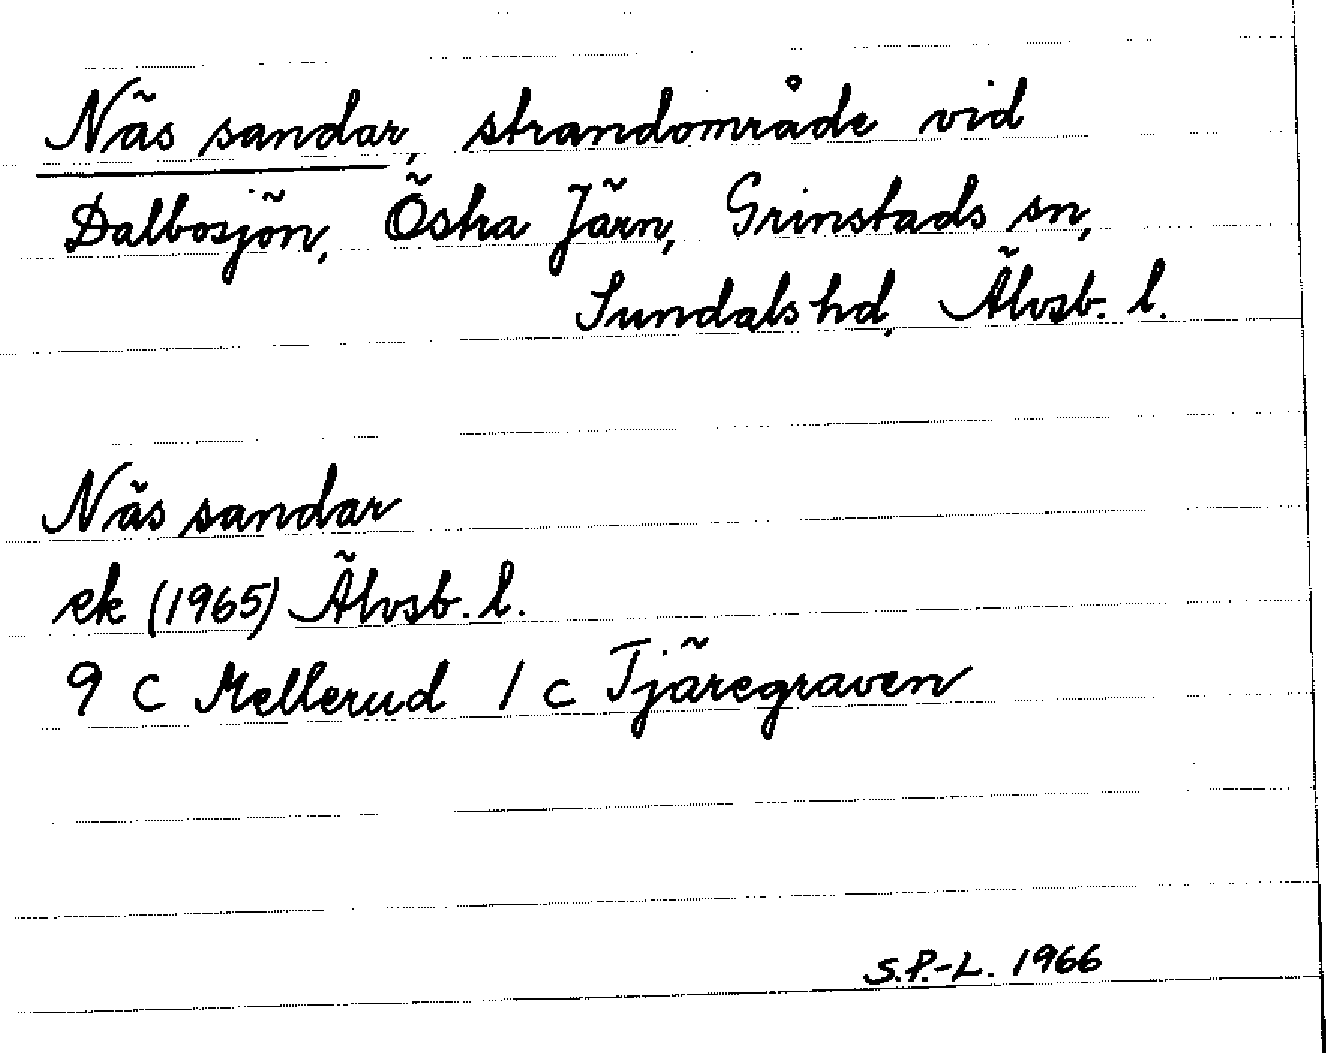 Näs sandar, strandområde vid
Dalbosjön, Östra Järn, Grinstads sn,
Sundals hd, Älvsb. l.
Näs sandar
ek (1965) Älvsb. l.
9 C Mellerud 1 c Tjäregraven
S.P.-L. 1966